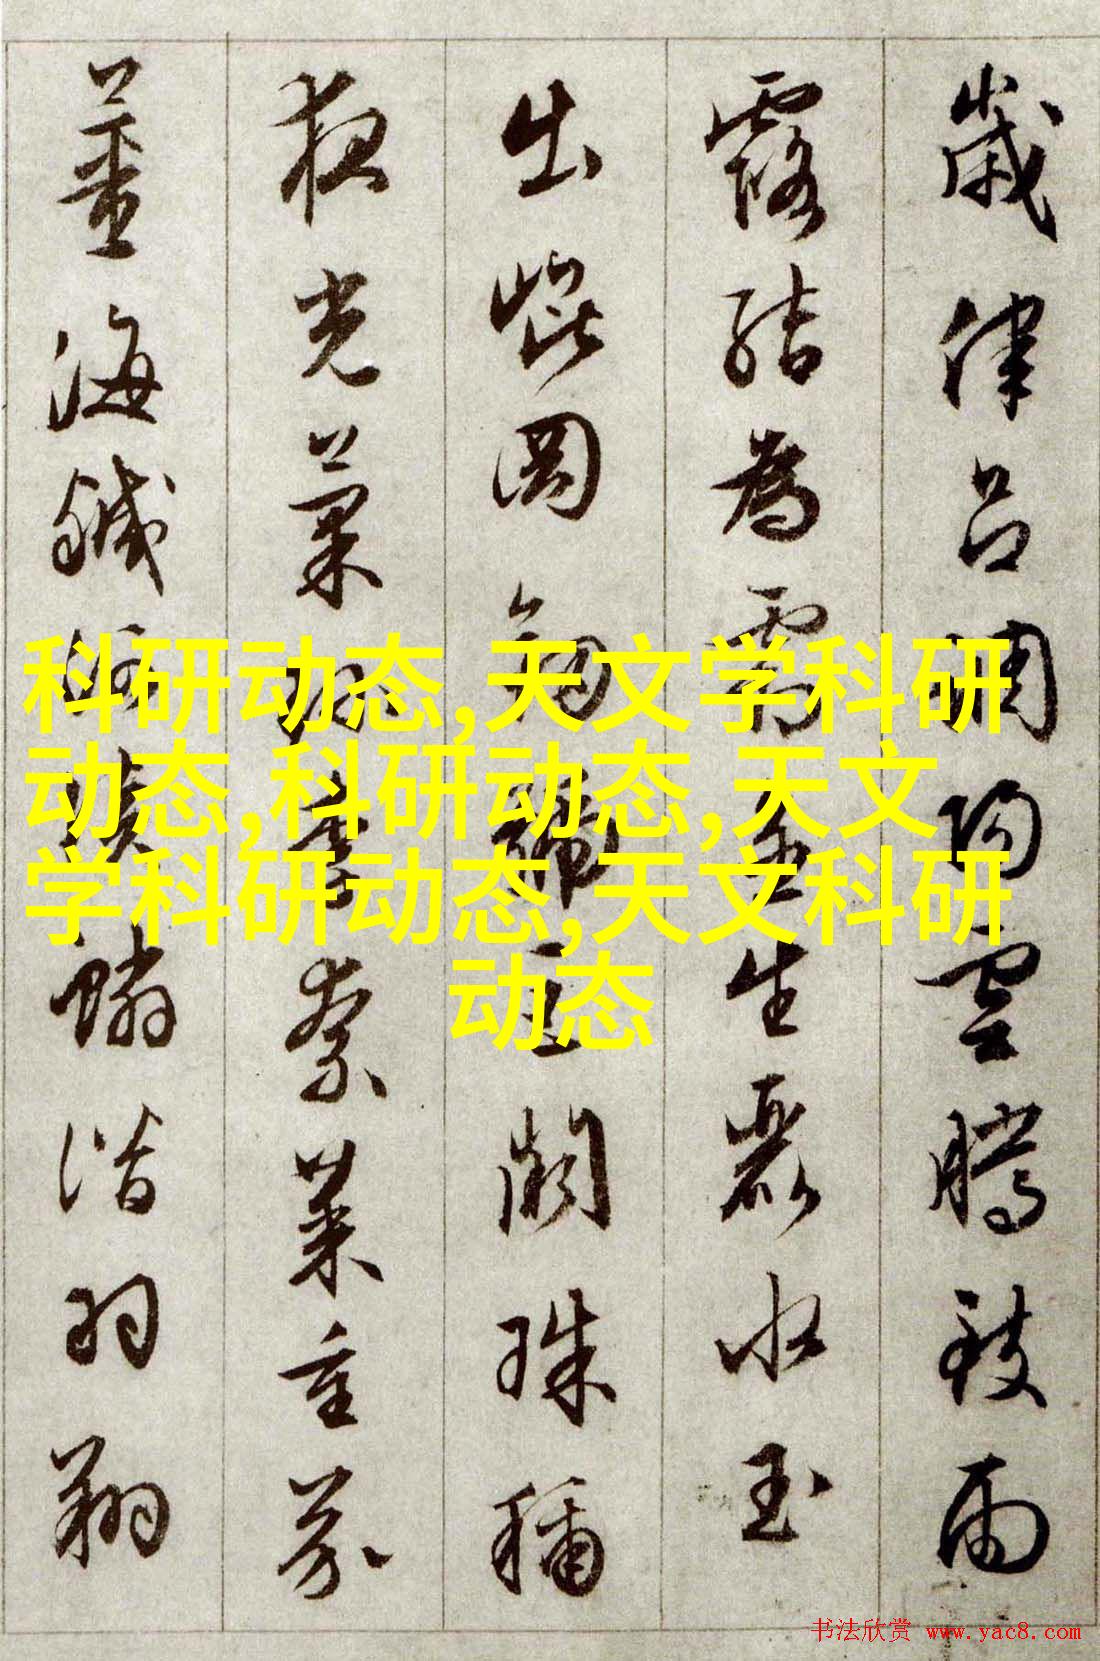 歲律呂調陽雲騰致雨
露結為霜金生麗水玉
出崑岡劍號巨闕珠稱
夜光菓珍李柰菜重芥
薑海鹹河淡鱗潛羽翔
科研动态,天文学科研
动态,科研动态,天文
学科研动态,天文科研
动态
书法欣赏 www.yac8.com